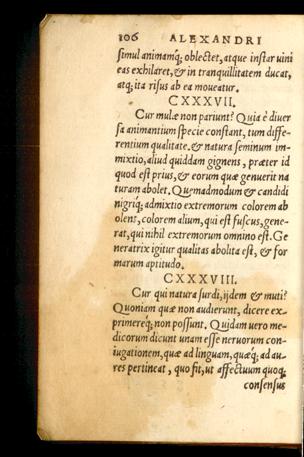 106 ALEXANDRI
simul animamq́; oblectet, atque instar uini
eas exhilaret, & in tranquillitatem ducat,
atq; ita risus ab ea moueatur.
CXXXVII.
Cur mulæ non pariunt? Quia è diuer
sa animantium specie constant, tum diffe-
rentium qualitate, & natura seminum im-
mixtio, aliud quiddam gignens, præter id
quod est prius, & eorum quæ genuerit na
turam abolet. Quemadmodum & candidi
nigriq́; admixtio extremorum colorem ab
olent, colorem alium, qui est fuscus, gene-
rat, qui nihil extremorum omnino est. Ge
neratrix igitur qualitas abolita est, & for
marum aptitudo.
CXXXVIII.
Cur qui natura surdi, ijdem & muti?
Quoniam quæ non audierunt, dicere ex-
primereq́; non possunt. Quidam uero me-
dicorum dicunt unam esse neruorum con-
iugationem, quæ ad linguam, quæq́; ad au-
res pertineat, quo fit, ut affectuum quoq;
consensus